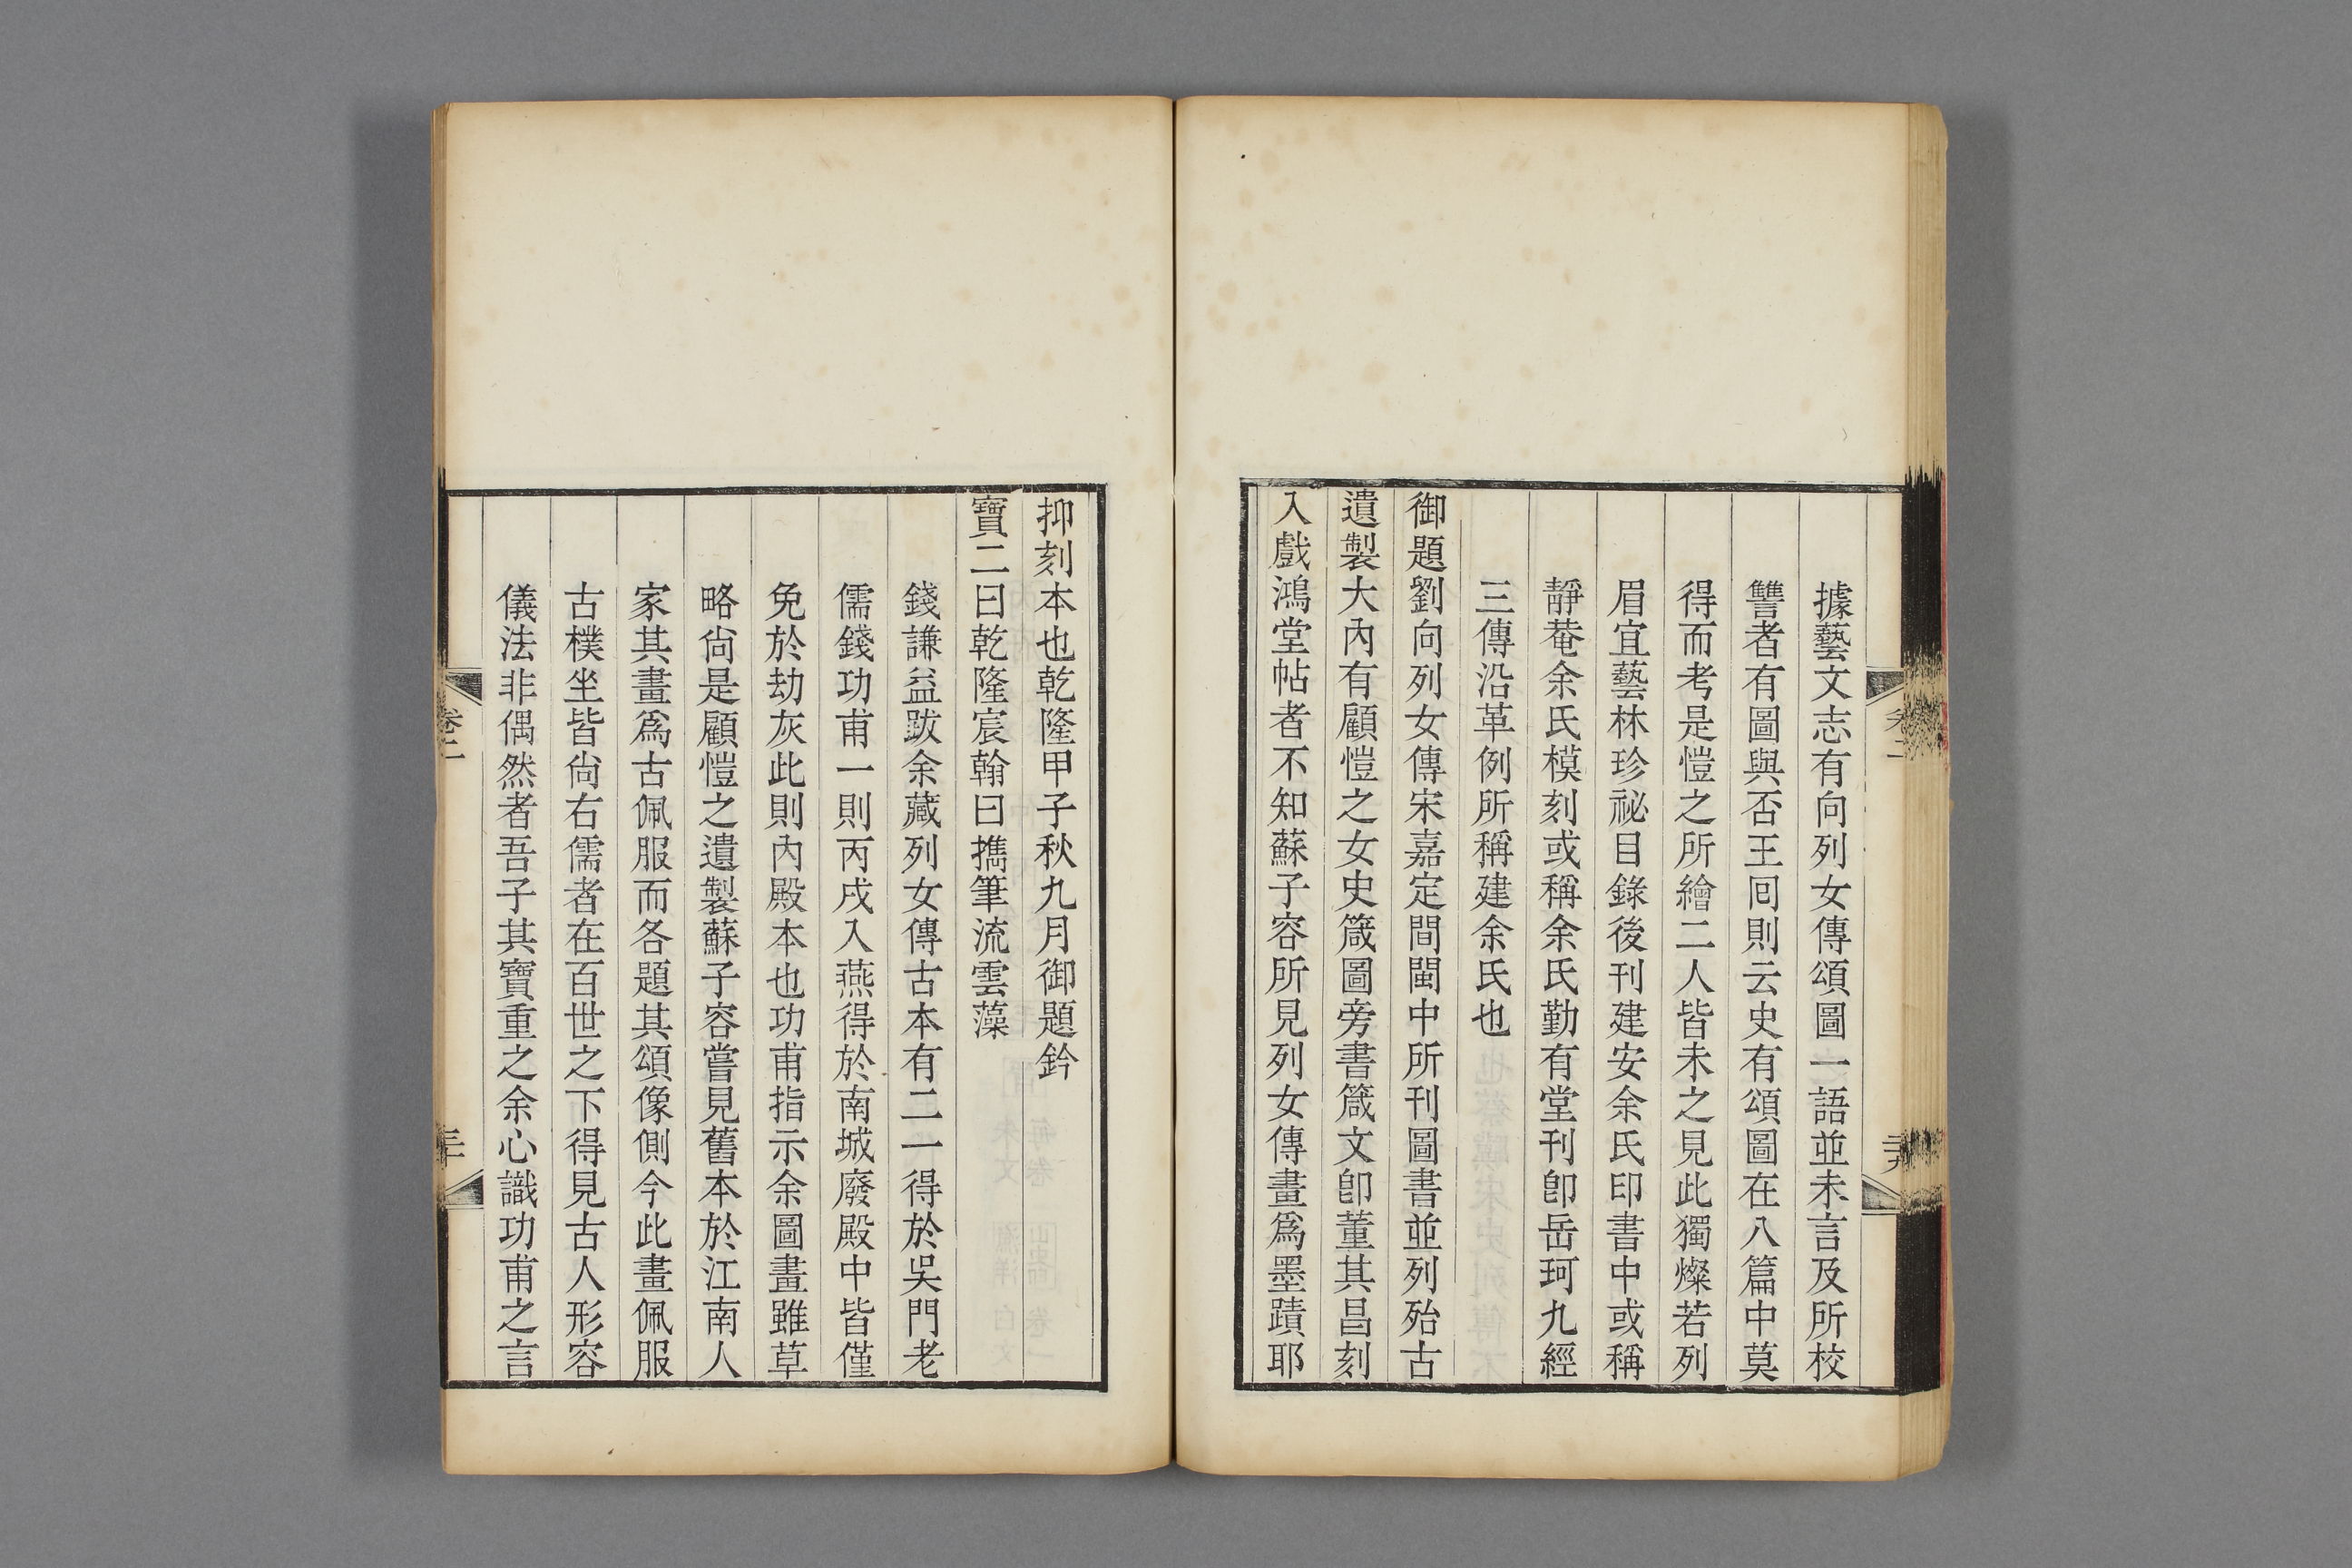 據藝文志有向列女傳頌圖一語並未言及所校
讐者有圖與否王回則云史有頌圖在八篇中莫
得而考是愷之所繪二人皆未之見此獨燦若列
眉宜藝林珍祕目錄後刊建安余氏印書中或稱
靜菴余氏模刻或稱余氏勤有堂刊卽岳珂九經
三傳沿革例所稱建余氏也
御題劉向列女傳宋嘉定間閩中所刊圖書並列殆古
遺製大內有顧愷之女史箴圖旁書箴文卽董其昌刻
入戲鴻堂帖者不知蘇子容所見列女傳畫爲墨蹟耶
抑刻本也乾隆甲子秋九月御題鈐
寶二曰乾隆宸翰曰擕筆流雲藻
錢謙益跋余藏列女傳古本有二一得於吳門老
儒錢功甫一則丙戌入燕得於南城廢殿中皆僅
免於劫灰此則內殿本也功甫指示余圖畫雖草
略尙是顧愷之遺製蘇子容嘗見舊本於江南人
家其畫爲古佩服而各題其頌像側今此畫佩服
古樸坐皆尙右儒者在百世之下得見古人形容
儀法非偶然者吾子其寶重之余心識功甫之言
卷二
三十